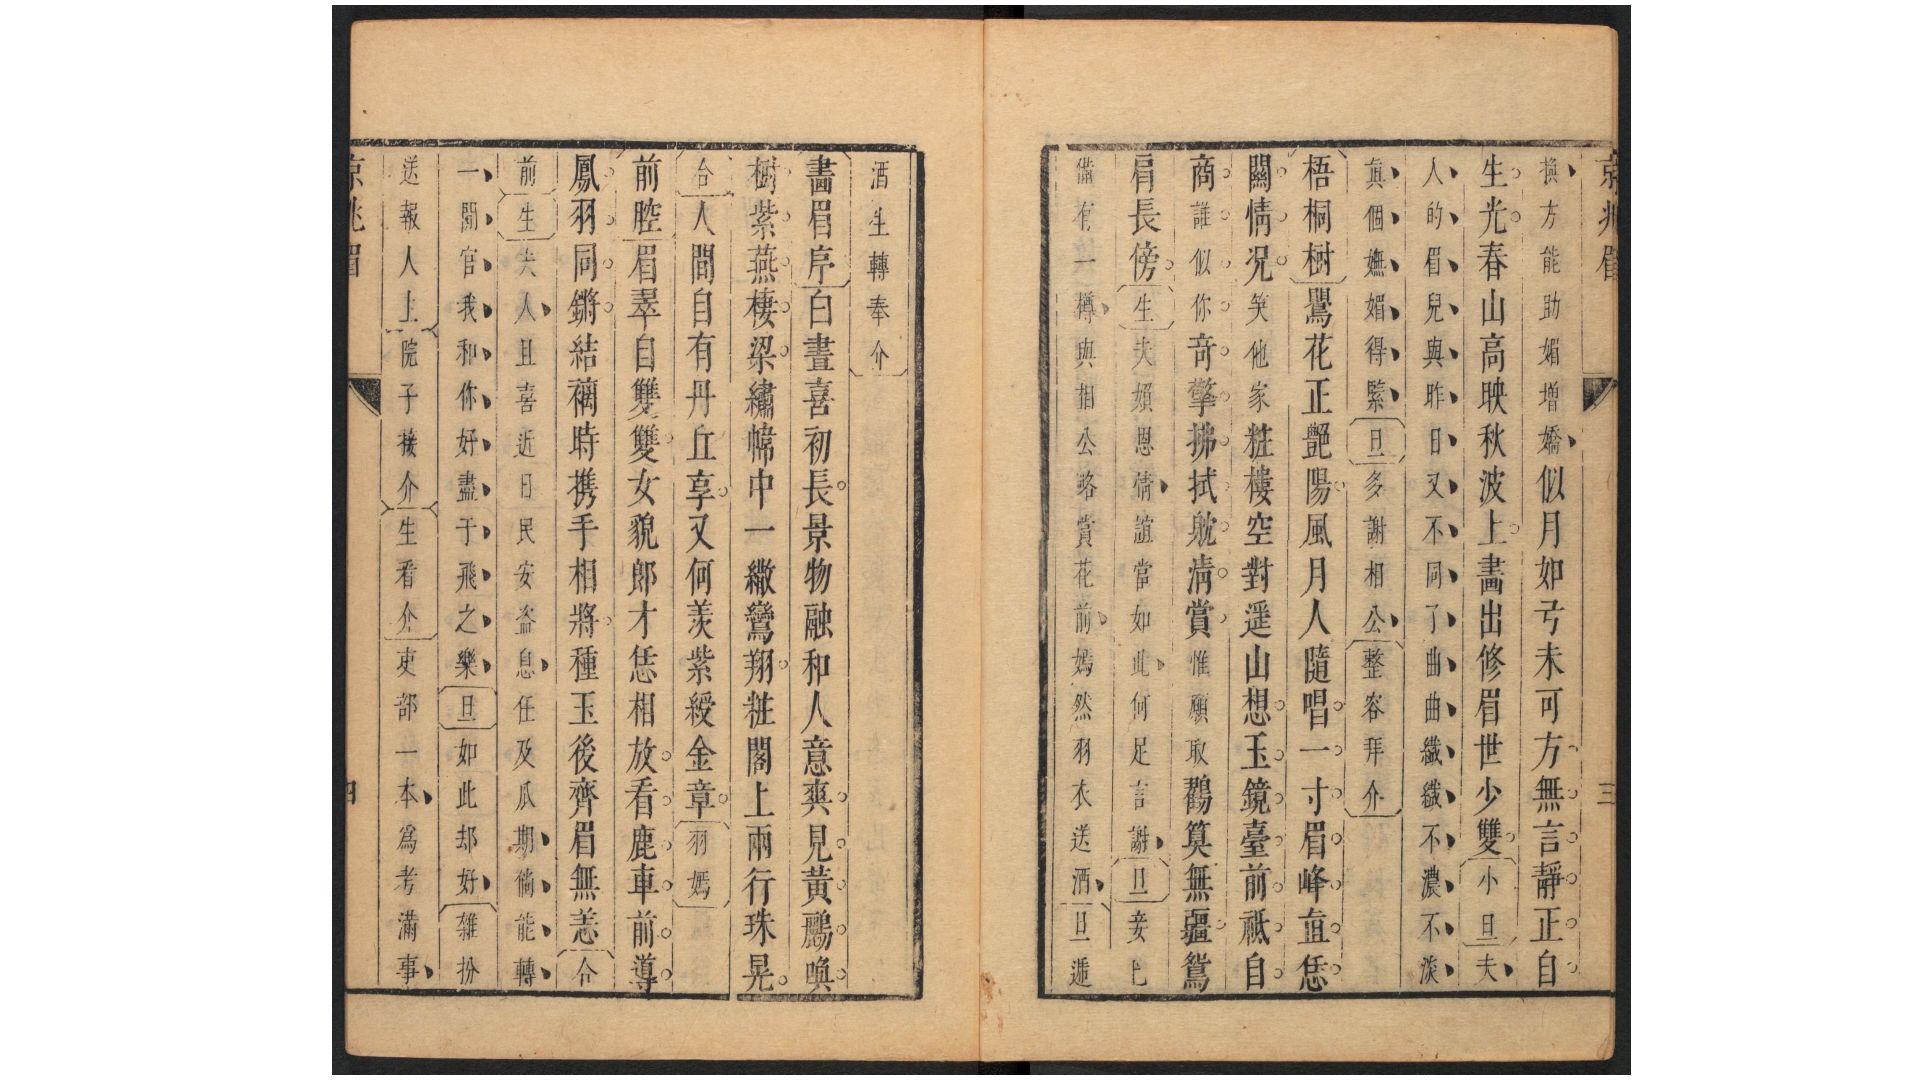 京兆眉
三
換方能助媚增嬌似月如弓未可方無言靜正自
生光春山高映秋波上畫出修眉世少雙小旦夫
人的眉兒與昨日又不同了曲曲纖纖不濃不淡
真個嫵媚得緊旦多謝相公整容拜介
梧桐樹鸎花正艷陽風月人隨唱一寸眉峰直恁
關情况笑他家粧樓空對遥山想玉鏡臺前祗自
商誰似你竒擎拂拭躭清賞惟願取鸛筭無疆鴛
肩長傍生夫頻恩情誼當如此何足言謝旦妾已
備有一樽與相公略賞花前嫣然羽衣送酒旦遞
酒生轉奉介
畵眉序白晝喜初長景物融和人意爽見黄鸝喚
樹紫燕棲梁繡幃中一繳鸞翔粧閣上兩行珠晃
合人間自有丹丘享又何羡紫綬金章羽嫣
前腔眉翠自雙雙女貌郎才恁相放看鹿車前導
鳳羽同鏘結褵時携手相將種玉後齊眉無恙合
前生夫人且喜近日民安盗息任及瓜期倘能轉
一閒官我和你好盡于飛之樂旦如此却好雜扮
送報人上院子接介生看介吏部一本爲考滿事
京兆眉
四